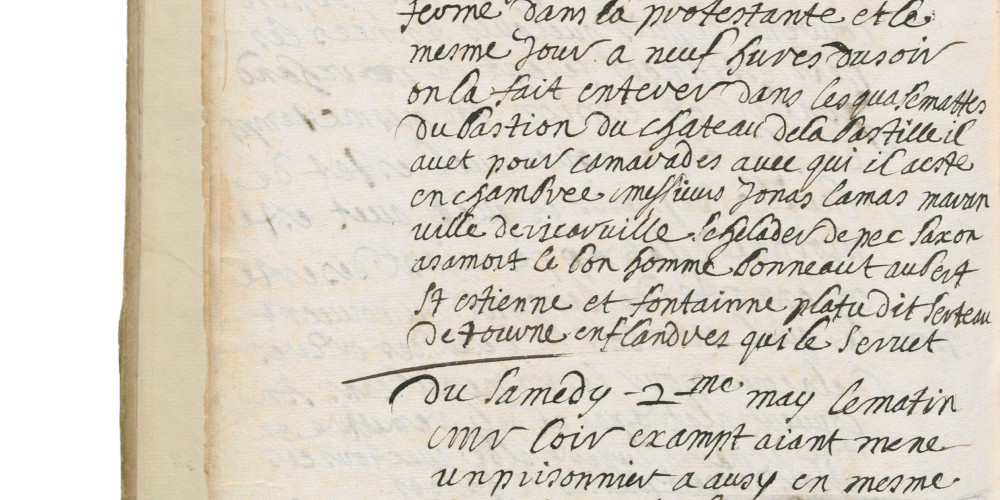 ferme dans la protestante et le
mesme Jour a neuf hures du soir
on la fait enterer dans les quasemattes
du bastion du chateau de la bastille il
avet pour camarades avec qui il a este
en chambree messieurs Jonas lamas marin
ville de ricarville schelader de pec saxon
asamort le bon homme bonneaut aubert
st estienne et fontainne platu dit serteau
de tourne en flandres qui le servet
Du samedy 2me may le matin
mr loir exampt aiant mene
un prisonnier a ausy en mesme